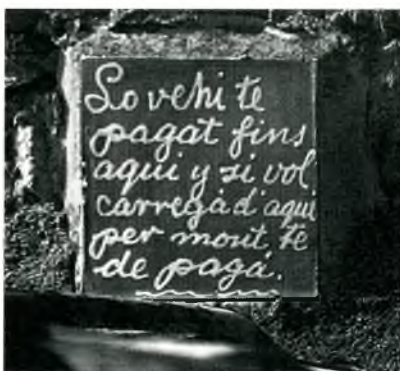 Lo vehi te
pagat fins
aqui y si vol
carregá d'aqui
per mont, te
de pagá.